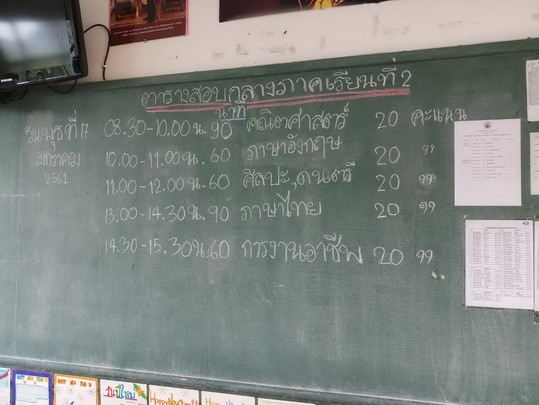 ตารางสอบกลางภาคเรียนที่ 2
นาที
วันพุธที่ 17 08.30-10.00 น. 90 คณิตศาสตร์ 20 คะแนน
มกราคม 10.00-11.00 น. 60 ภาษาอังกฤษ 20 ,,
2561 11.00-12.00 น. 60 ศิลปะ,ดนตรี 20 ,,
13.00-14.30 น. 90 ภาษาไทย 20 ,,
14.30-15.30 น. 60 การงานอาชีพ 20 ,,